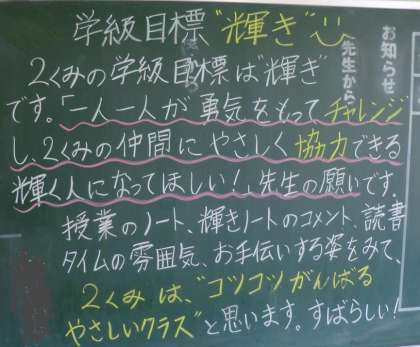 学級目標"輝き"
2くみの学級目標は"輝き"
です。「一人一人が勇気をもってチャレンジ
し、2くみの仲間にやさしく協力できる
輝く人になってほしい!」先生の願いです。
授業のノート、輝きノートのコメント、読書
タイムの雰囲気、お手伝いする姿をみて、
2くみは、"コツコツがんばる
やさしいクラス"と思います。すばらしい!
お知らせ
先生から